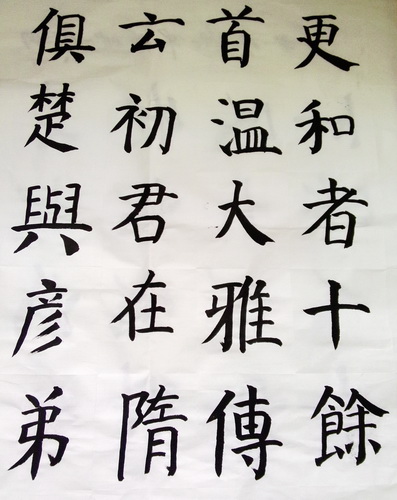 更和者十餘
首温大雅傳
云初君在隋
俱楚與彦弟